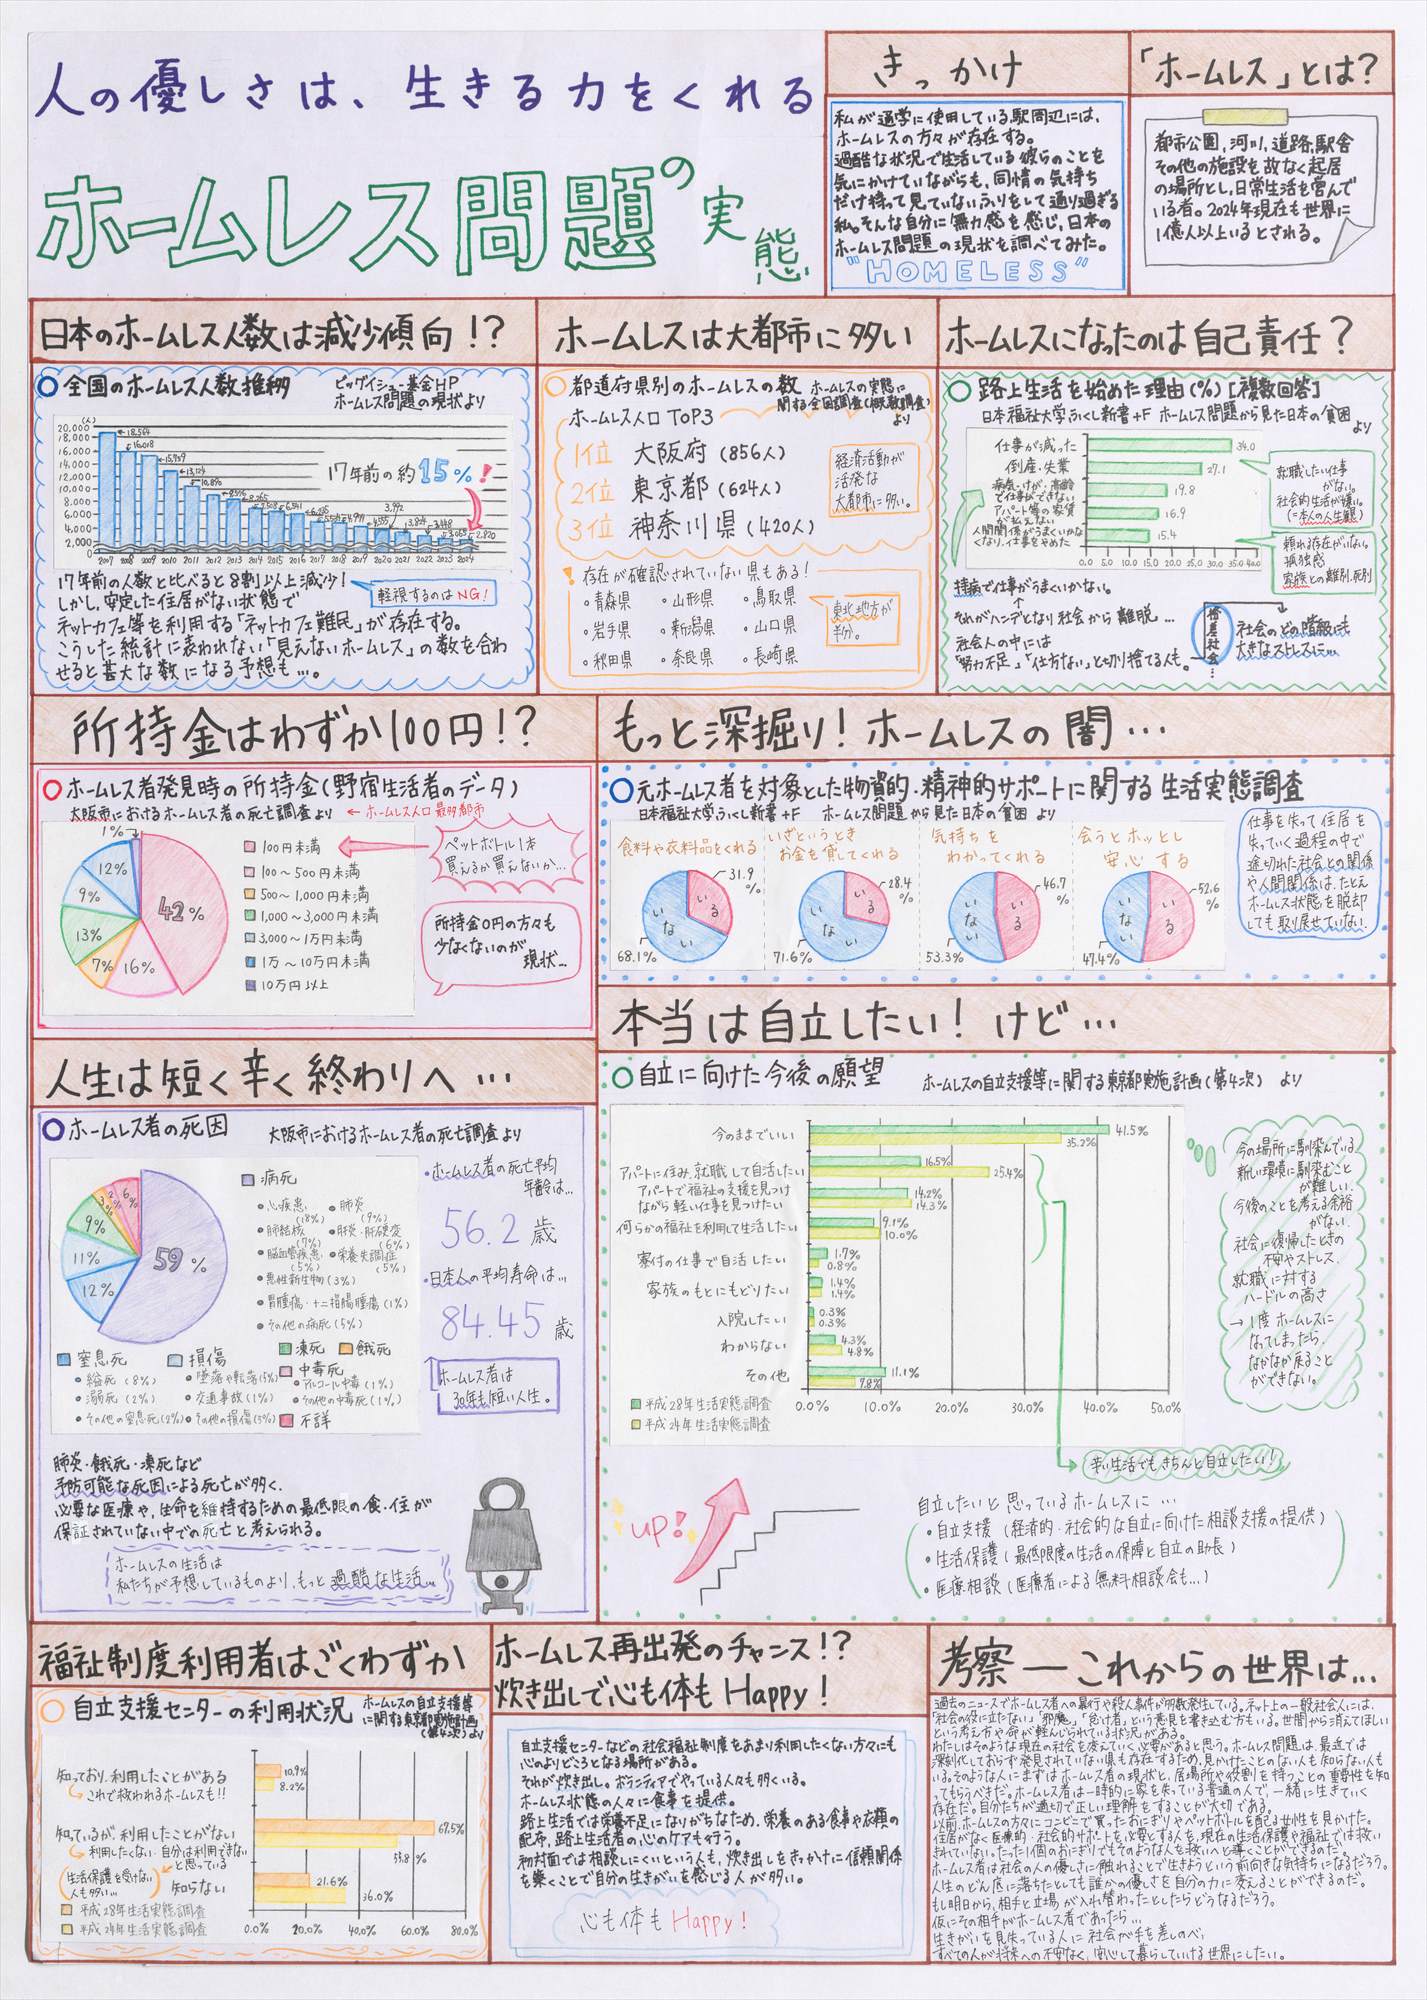 人の優しさは、生きる力をくれる
ホームレス問題の実態
きっかけ
私が通学に使用している駅周辺には、
ホームレスの方々が存在する。
過酷な状況で生活している彼らのことを
気にかけていながらも、同情の気持ち
だけ持って見ていないふりをして通り過ぎる
私。そんな自分に無力感を感じ、日本の
ホームレス問題の現状を調べてみた。
"HOMELESS"
「ホームレス」とは?
都市公園,河川,道路,駅舎
その他の施設を故なく起居
の場所とし、日常生活を営んで
いる者。2024年現在も世界に
1億人以上いるとされる。
日本のホームレス人数は減少傾向!?
全国のホームレス人数推移
ビッグイシュー基金HP
ホームレス問題の現状より
(人)
20,000
18,000
16,000
14,000
12,000
10,000
8,000
6,000
4,000
2,000
0
18,564
16,018
15,759
13,124
10,890
9,576
8,265
7,508
6,541
6,235
5,534
4,977
4,555
3,992
3,824
3,448
3,065
2,820
2007 2008 2009 2010 2011 2012 2013 2014 2015 2016 2017 2018 2019 2020 2021 2022 2023 2024
17年前の約15%!
17年前の人数と比べると8割以上減少!
軽視するのはNG!
しかし、安定した住居がない状態で
ネットカフェ等を利用する「ネットカフェ難民」が存在する。
こうした統計に表われない「見えないホームレス」の数を合わ
せると甚大な数になる予想も…。
ホームレスは大都市に多い
都道府県別のホームレスの数
ホームレスの実態に
関する全国調査(概数調査)
より
ホームレス人口 TOP3
1位 大阪府(856人)
2位 東京都(624人)
3位 神奈川県(420人)
経済活動が
活発な
大都市に多い。
! 存在が確認されていない県もある!
・青森県 ・山形県 ・鳥取県
・岩手県 ・新潟県 ・山口県
・秋田県 ・奈良県 ・長崎県
東北地方が
半分。
ホームレスになったのは自己責任?
路上生活を始めた理由(%)[複数回答]
日本福祉大学ふくし新書+F ホームレス問題から見た日本の貧困
より
仕事が減った
倒産・失業
病気・けが・高齢
で仕事ができない
アパート等の家賃
が払えない
人間関係がうまくいかな
くなり、仕事をやめた
34.0
27.1
19.8
16.9
15.4
0.0 5.0 10.0 15.0 20.0 25.0 30.0 35.0 40.0
就職したい仕事
がない。
社会的生活が嫌い。
(=本人の人生観)
頼れる存在がいない。
孤独感
家族との離別、死別
持病で仕事がうまくいかない。
それがハンデとなり社会から離脱…
社会人の中には
「努力不足」「仕方ない」と切り捨てる人も。
格差社会…
社会のどの階級にも
大きなストレスに…
所持金はわずか100円!?
ホームレス者発見時の所持金(野宿生活者のデータ)
大阪市におけるホームレス者の死亡調査より
← ホームレス人口最多都市
1%
12%
9%
13%
7%
16%
42%
100円未満
100〜500円未満
500〜1,000円未満
1,000〜3,000円未満
3,000〜1万円未満
1万〜10万円未満
10万円以上
ペットボトル1本
買えるか買えないか…
所持金0円の方々も
少なくないのが
現状…
もっと深掘り!ホームレスの闇…
元ホームレス者を対象とした物資的・精神的サポートに関する生活実態調査
日本福祉大学ふくし新書+F ホームレス問題から見た日本の貧困 より
食料や衣料品をくれる
いる
いない
31.9%
68.1%
いざというとき
お金を貸してくれる
いる
いない
28.4%
71.6%
気持ちを
わかってくれる
いる
いない
46.7%
53.3%
会うとホッとし
安心する
いる
いない
52.6%
47.4%
仕事を失って住居を
失っていく過程の中で
途切れた社会との関係
や人間関係は、たとえ
ホームレス状態を脱却
しても取り戻せていない。
人生は短く辛く終わりへ…
ホームレス者の死因
大阪市におけるホームレス者の死亡調査より
6%
2%
3%
9%
11%
12%
59%
病死
・心疾患(18%)
・肺炎(9%)
・肺結核(7%)
・肝炎・肝硬変(6%)
・脳血管疾患(5%)
・栄養失調症(5%)
・悪性新生物(3%)
・胃腫瘍・十二指腸腫瘍(1%)
・その他の病死(5%)
窒息死
・縊死(8%)
・溺死(2%)
・その他の窒息死(2%)
損傷
・墜落や転落(5%)
・交通事故(1%)
・その他の損傷(5%)
凍死
餓死
中毒死
・アルコール中毒(1%)
・その他の中毒死(1%)
不詳
・ホームレス者の死亡平均
年齢は…
56.2歳
・日本人の平均寿命は…
84.45歳
ホームレス者は
30年も短い人生。
肺炎・餓死・凍死など
予防可能な死因による死亡が多く、
必要な医療や、生命を維持するための最低限の食・住が
保証されていない中での死亡と考えられる。
ホームレスの生活は
私たちが予想しているものより、もっと過酷な生活…
本当は自立したい!けど…
自立に向けた今後の願望
ホームレスの自立支援等に関する東京都実施計画(第4次) より
今のままでいい
アパートに住み、就職して自活したい
アパートで福祉の支援を見つけ
ながら軽い仕事を見つけたい
何らかの福祉を利用して生活したい
寮付の仕事で自活したい
家族のもとにもどりたい
入院したい
わからない
その他
41.5%
35.2%
16.5%
25.4%
14.2%
14.3%
9.1%
10.0%
1.7%
0.8%
1.4%
1.4%
0.3%
0.3%
4.3%
4.8%
11.1%
7.8%
0.0% 10.0% 20.0% 30.0% 40.0% 50.0%
平成28年生活実態調査
平成24年生活実態調査
今の場所に馴染んでいる
新しい環境に馴染むこと
が難しい。
今後のことを考える余裕
がない。
社会に復帰したときの
不安やストレス。
就職に対する
ハードルの高さ
→1度ホームレスに
なってしまったら、
なかなか戻ること
ができない。
辛い生活でもきちんと自立したい!
up!
自立したいと思っているホームレスに…
・自立支援(経済的・社会的な自立に向けた相談支援の提供)
・生活保護(最低限度の生活の保障と自立の助長)
・医療相談(医療者による無料相談会も…)
福祉制度利用者はごくわずか
自立支援センターの利用状況
ホームレスの自立支援等
に関する東京都実施計画
(第4次)より
知っており、利用したことがある
これで救われるホームレスも!!
知っているが、利用したことがない
利用したくない・自分は利用できない
と思っている
(生活保護を受けない
人も多い…)
知らない
10.9%
8.2%
67.5%
53.8%
21.6%
36.0%
0.0% 20.0% 40.0% 60.0% 80.0%
平成28年生活実態調査
平成24年生活実態調査
ホームレス再出発のチャンス!?
炊き出しで心も体もHappy!
自立支援センターなどの社会福祉制度をあまり利用したくない方々にも
心のよりどころとなる場所がある。
それが炊き出し。ボランティアでやっている人々も多くいる。
ホームレス状態の人々に食事を提供。
路上生活では栄養不足になりがちなため、栄養のある食事や衣類の
配布、路上生活者の心のケアも行う。
初対面では相談しにくいという人も、炊き出しをきっかけに信頼関係
を築くことで自分の生きがいを感じる人が多い。
心も体もHappy!
考察―これからの世界は…
過去のニュースでホームレス者への暴行や殺人事件が多数発生している。ネット上の一般社会人には、
「社会の役に立たない」「邪魔」「怠け者」という意見を書き込む方もいる。世間から消えてほしい
という考え方や命が軽んじられている状況がある。
わたしはそのような現在の社会を変えていく必要があると思う。ホームレス問題は、最近では
深刻化しておらず発見されていない県も存在するため、見かけたことのない人も知らない人も
いる。そのような人にまずはホームレス者の現状と、居場所や役割を持つことの重要性を知
ってもらうべきだ。ホームレス者は一時的に家を失っている普通の人で、一緒に生きていく
存在だ。自分たちが適切で正しい理解をすることが大切である。
以前、ホームレスの方々にコンビニで買ったおにぎりやペットボトルを配る女性を見かけた。
住居がなく医療的・社会的サポートを必要とする人を、現在の生活保護や福祉では救い
きれていない。たった1個のおにぎりでもそのような人を救いへと導くことができるのだ。
ホームレス者は社会の人の優しさに触れることで生きようという前向きな気持ちになるだろう。
人生のどん底に落ちたとしても誰かの優しさを自分の力に変えることができるのだ。
もし明日から、相手と立場が入れ替わったとしたらどうなるだろう。
仮にその相手がホームレス者であったら…
生きがいを見失っている人に社会が手を差しのべ、
すべての人が将来への不安なく、安心して暮らしていける世界にしたい。